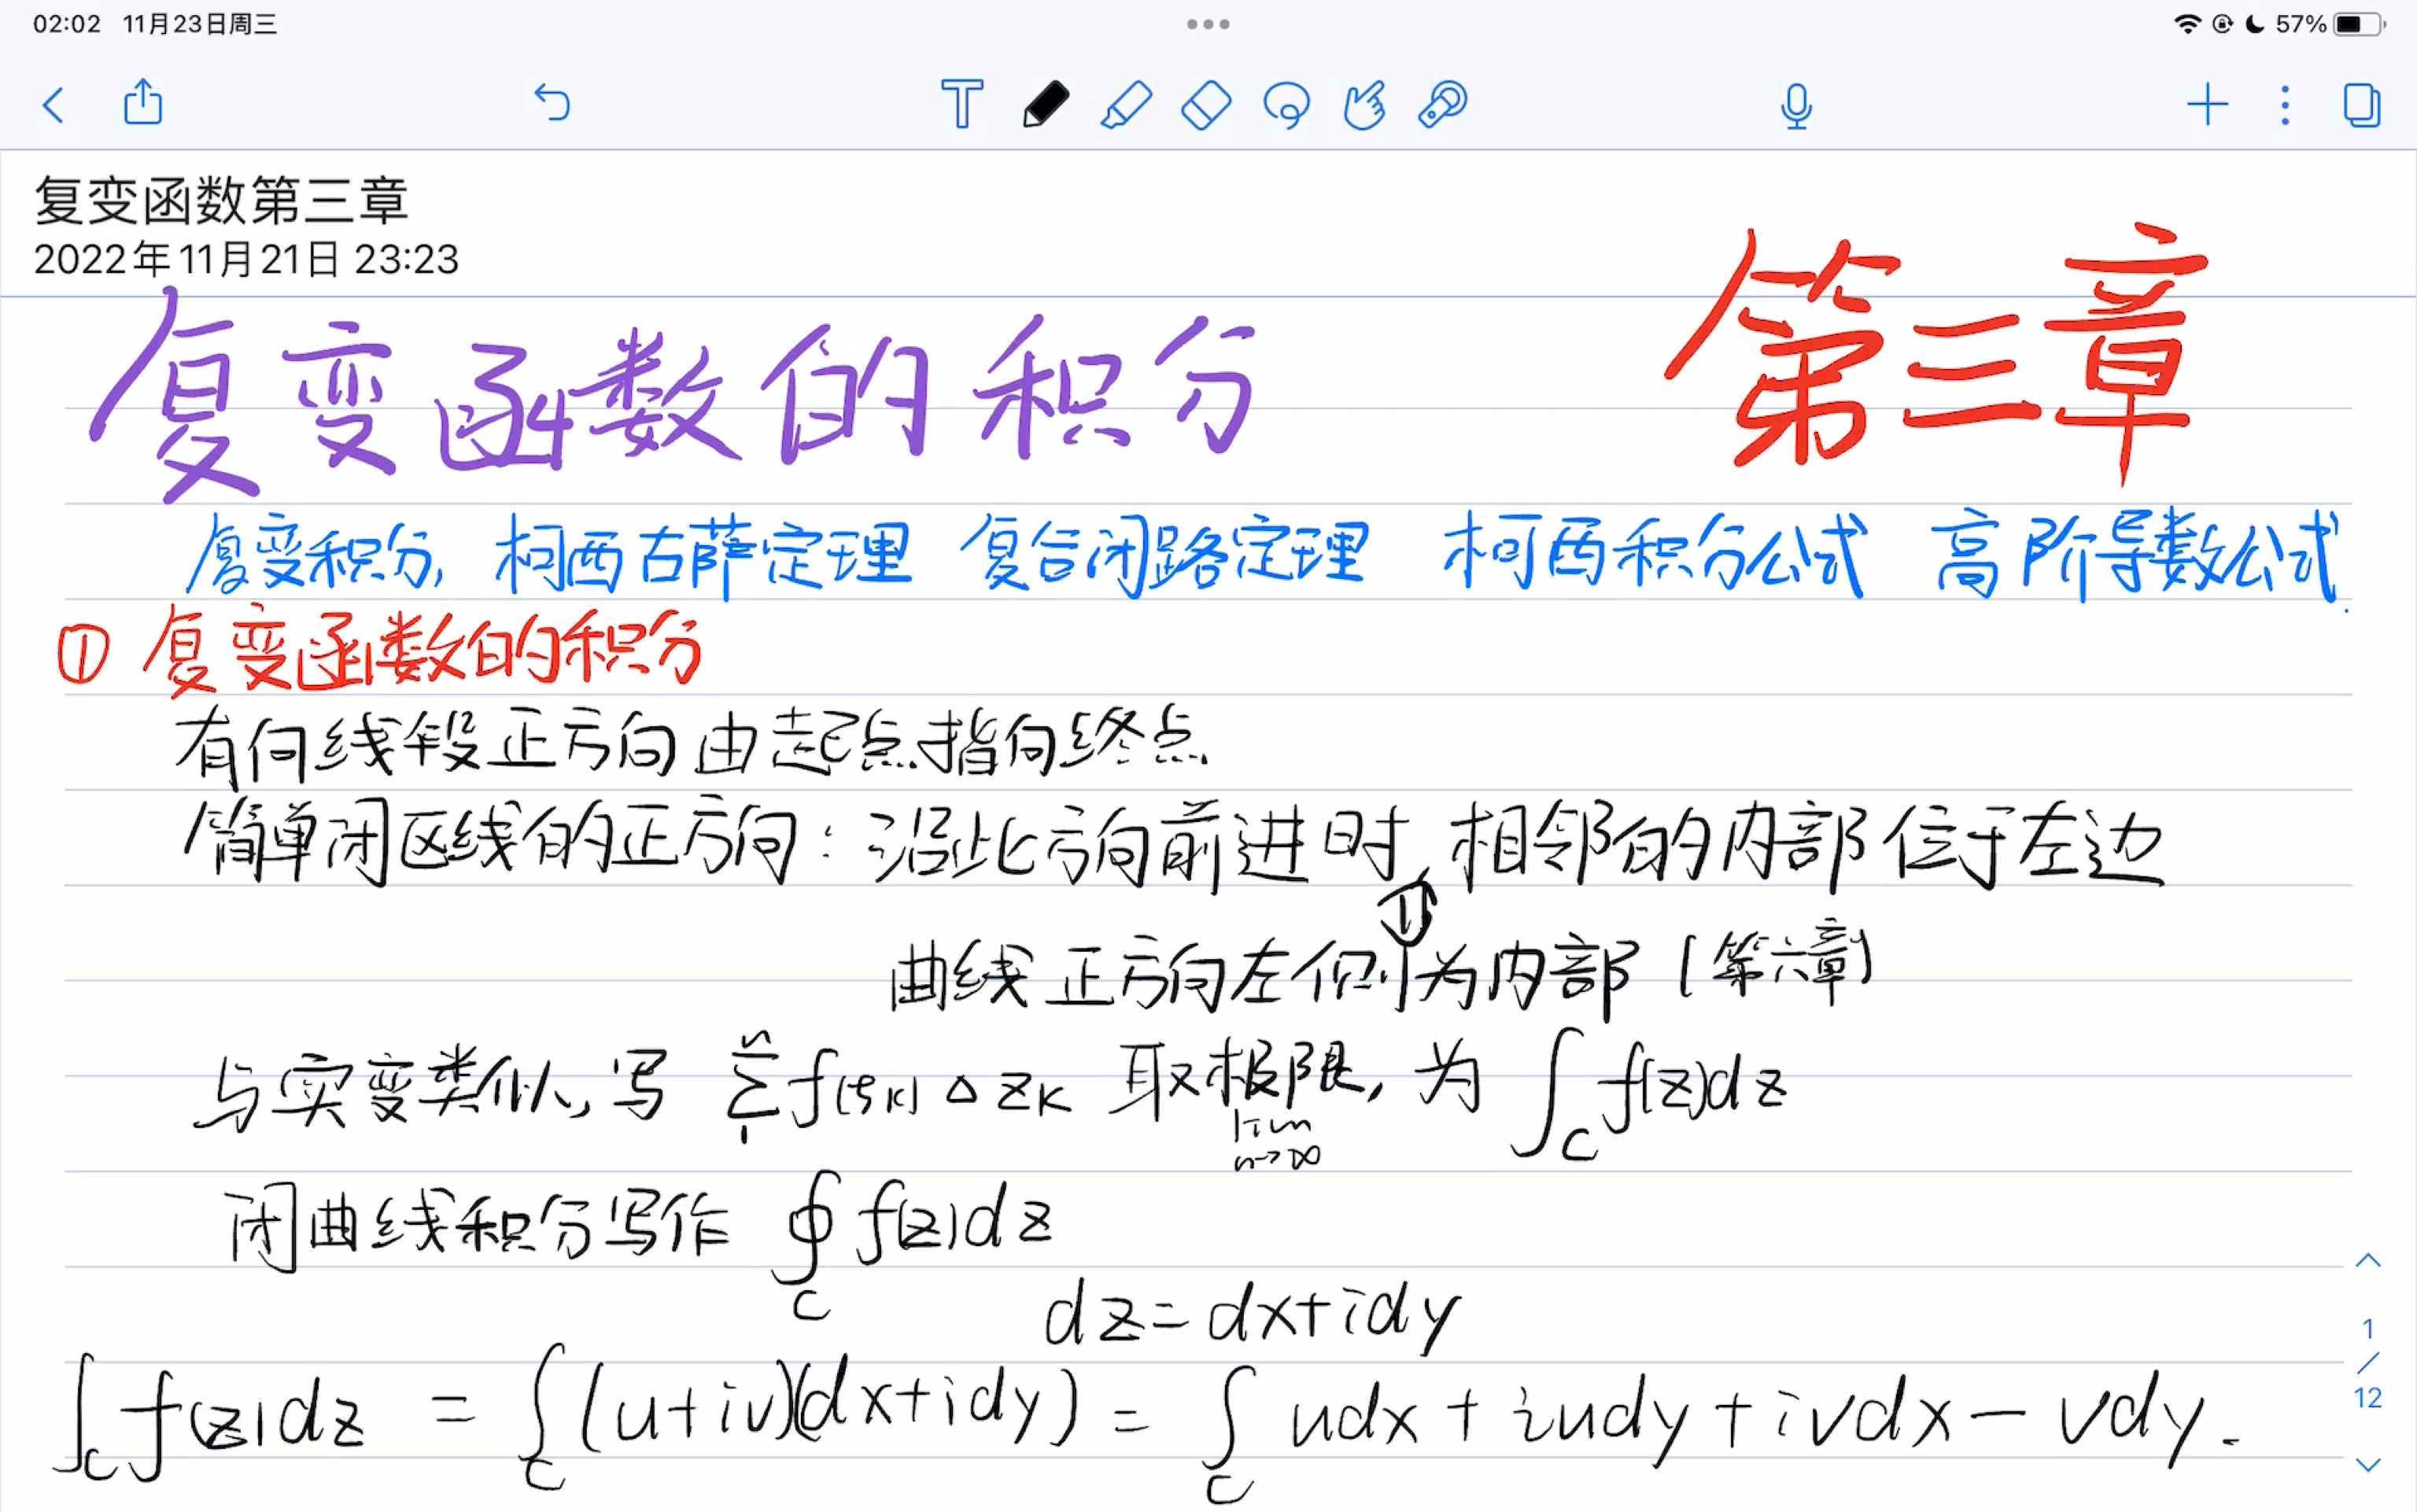 02:02 11月23日周三
57%
复变函数第三章
2022年11月21日 23:23
第三章
复变函数的积分
复变积分, 柯西古萨定理 复合闭路定理 柯西积分公式 高阶导数公式.
① 复变函数的积分
有向线段正方向由起点指向终点
简单闭区线的正方向：沿此方向前进时, 相邻的内部位于左边
⇓
曲线正方向左侧为内部 (第六章)
与实变类似, 写 ∑₁ⁿ f(ξₖ) Δzₖ 取极限, 为 ∫_C f(z)dz
lim n→∞
闭曲线积分写作 ∮_C f(z)dz
dz = dx+idy
∫_C f(z)dz = ∫_C (u+iv)(dx+idy) = ∫_C udx + iudy + ivdx − vdy.
1
/
12